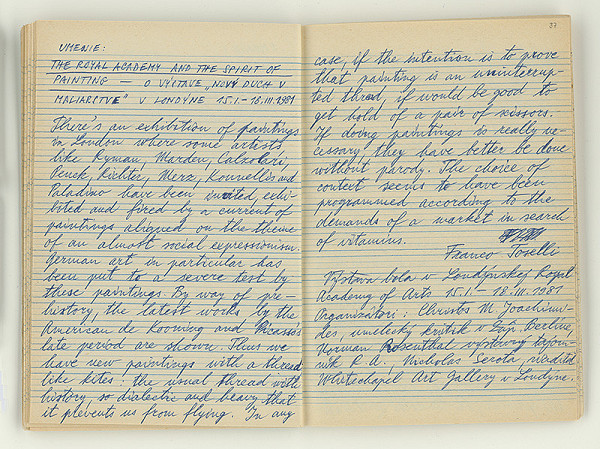 UMENIE:
THE ROYAL ACADEMY AND THE SPIRIT OF
PAINTING — O VÝSTAVE „NOVÝ DUCH V
MALIARSTVE" V LONDÝNE 15.I.-18.III.1981
There's an exhibition of paintings
in London where some artists
like Ryman, Marden, Calzolari,
Penck, Richter, Merz, Kounellis and
Paladino have been invited, exhi-
bited and fired by a current of
paintings aligned on the theme
of an almost social expressionism.
German art in particular has
been put to a severe test by
these paintings. By way of pre-
history, the latest works by the
American de Kooning and Picasso's
late period are shown. Thus we
have new paintings with a thread
like kites: the usual thread with
history, so dialectic and heavy that
it prevents us from flying. In any
37
case, if the intention is to prove
that painting is an uninterrup-
ted thread, if would be good to
get hold of a pair of scissors.
If doing paintings is really ne-
cessary, they have better be done
without parody. The choice of
context seems to have been
programmed according to the
demands of a market in search
of vitamins.
Franco Toselli
Výstava bola v Londýnskej Royal
Academy of Arts 15.I.-18.III.1981
Organizátori: Christos M. Joachimi-
des umelecký kritik v Berlíne,
Norman Rosenthal výstavný tajom-
ník R.A., Nicholas Serota, riaditeľ
Whitechapel Art Gallery v Londýne.